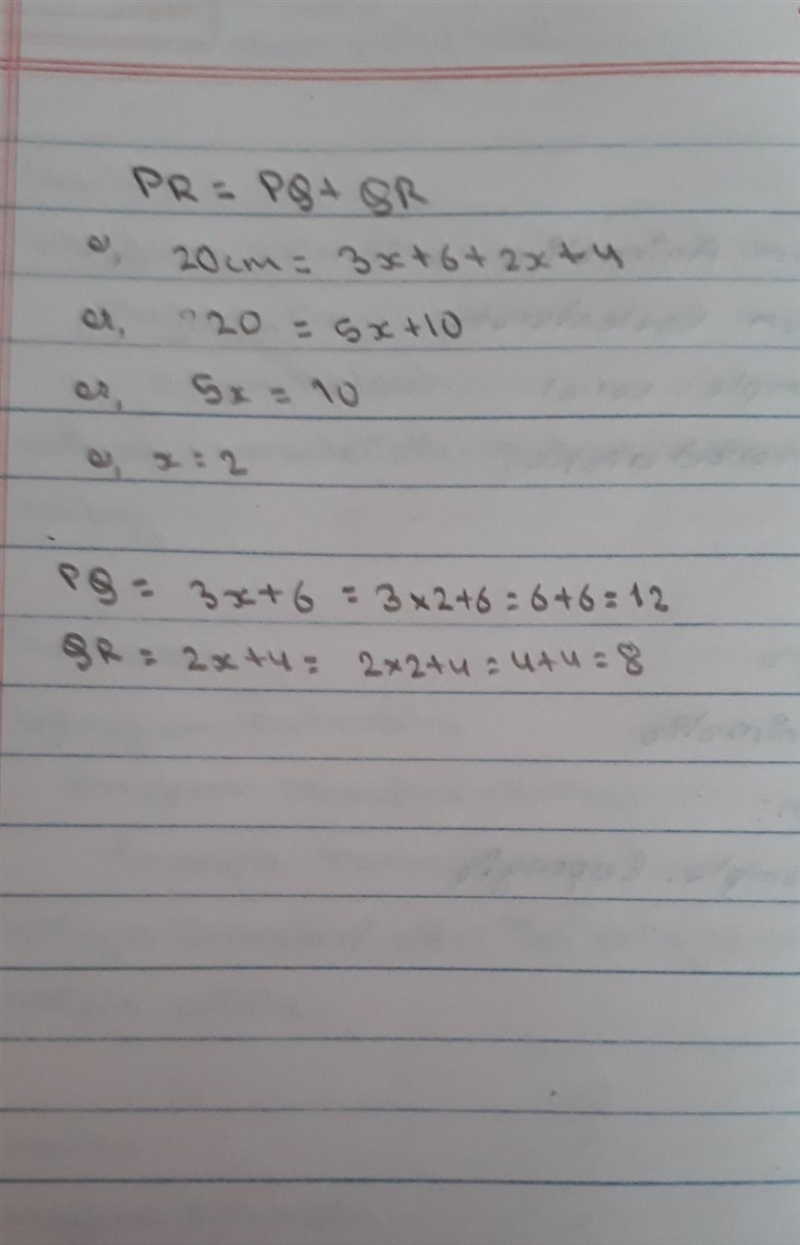 PR = PQ + QR
or, 20cm = 3x + 6 + 2x + 4
or, 20 = 5x + 10
or, 5x = 10
or, x = 2
PQ = 3x + 6 = 3 × 2 + 6 = 6 + 6 = 12
QR = 2x + 4 = 2 × 2 + 4 = 4 + 4 = 8